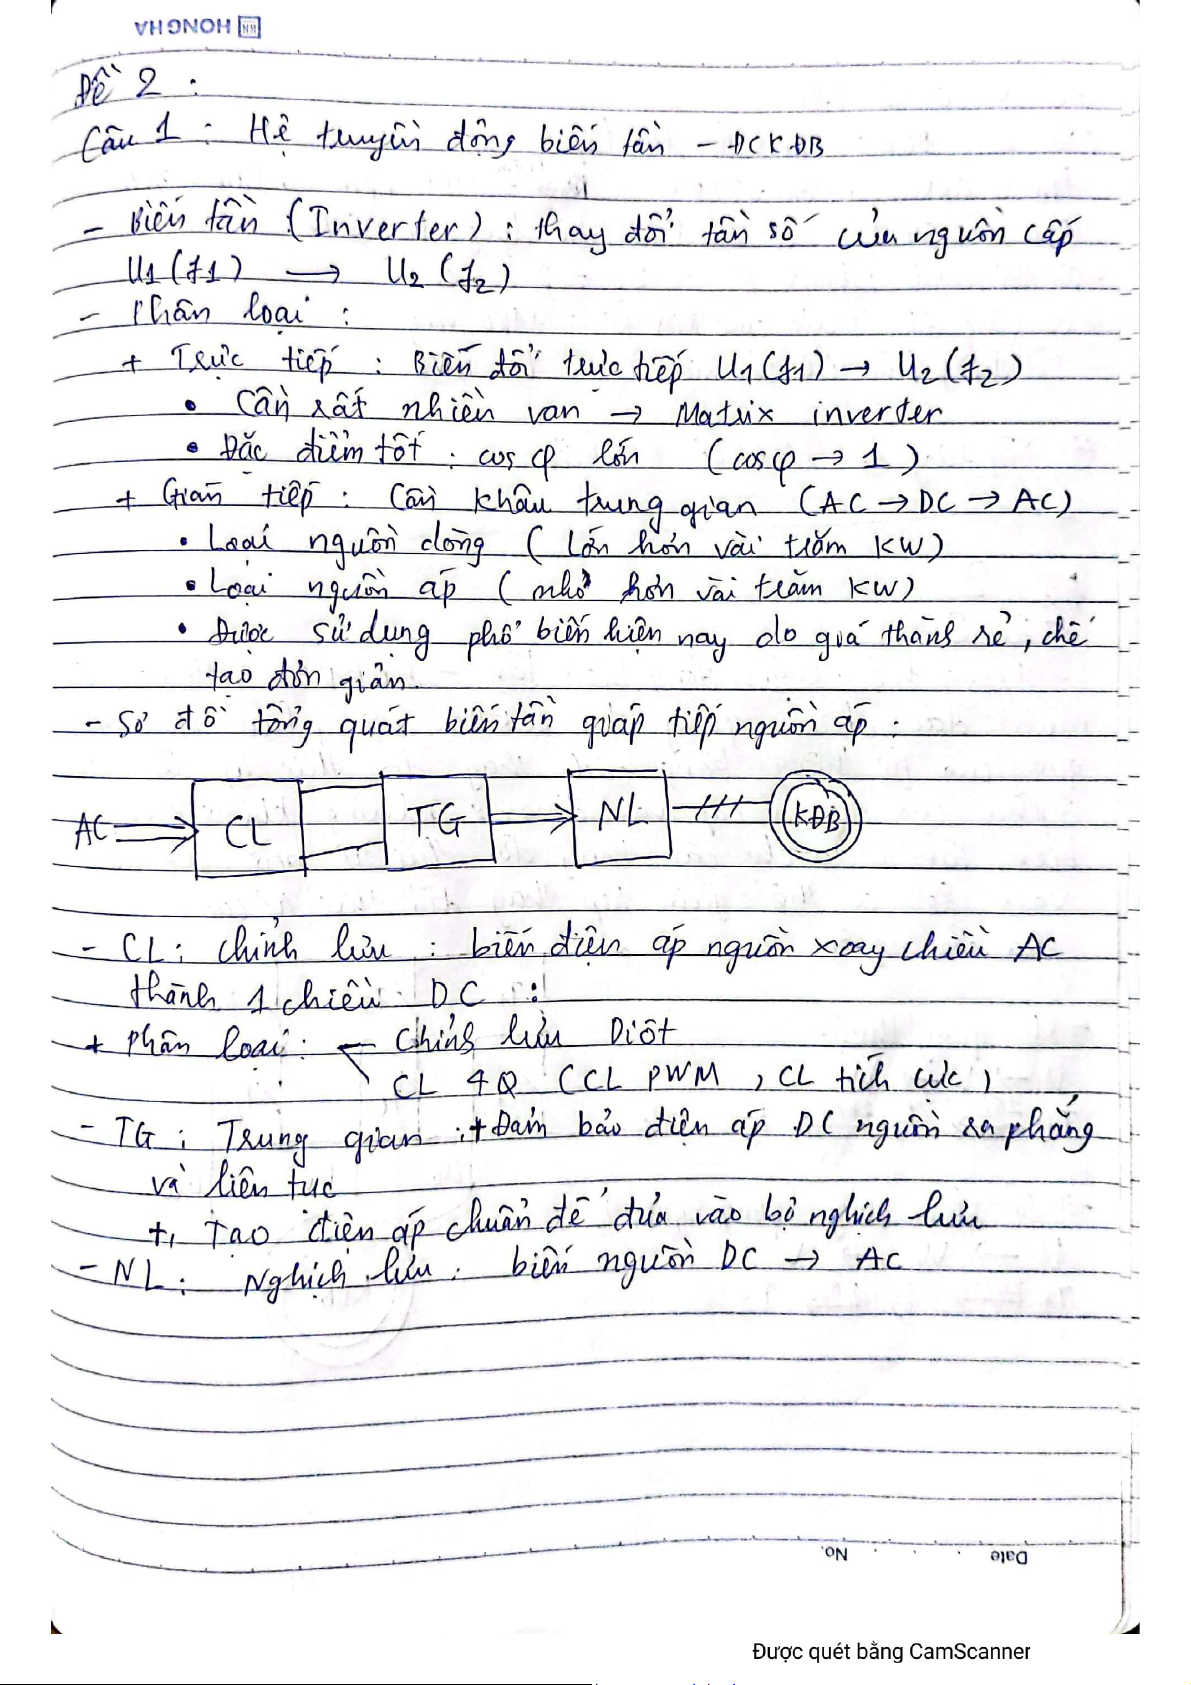 HONG HA
Đề 2 :
Câu 1 : Hệ truyền động biến tần - ĐCKĐB
- Biến tần (Inverter) : thay đổi tần số của nguồn cấp
U1 (f1) → U2 (f2)
- Phân loại :
+ Trực tiếp : Biến đổi trực tiếp U1(f1) → U2(f2)
• Cần rất nhiều van → Matrix inverter
• Đặc điểm tốt : cos φ lớn (cosφ → 1)
+ Gián tiếp : Cần khâu trung gian (AC → DC → AC)
• Loại nguồn dòng ( Lớn hơn vài trăm KW)
• Loại nguồn áp ( nhỏ hơn vài trăm KW)
• Được sử dụng phổ biến hiện nay do giá thành rẻ, chế
tạo đơn giản.
- Sơ đồ tổng quát biến tần giáp tiếp nguồn áp :
AC CL TG NL KĐB
- CL : chỉnh lưu : biến điện áp nguồn xoay chiều AC
thành 1 chiều DC :
+ Phân loại : Chỉnh lưu Diôt
CL 4Q (CL PWM, CL tích cực)
- TG : Trung gian : + Đảm bảo điện áp DC nguồn ra phẳng
và liên tục
+, Tạo điện áp chuẩn để đưa vào bộ nghịch lưu
- NL : Nghịch lưu : biến nguồn DC → AC
No. Date
Được quét bằng CamScanner